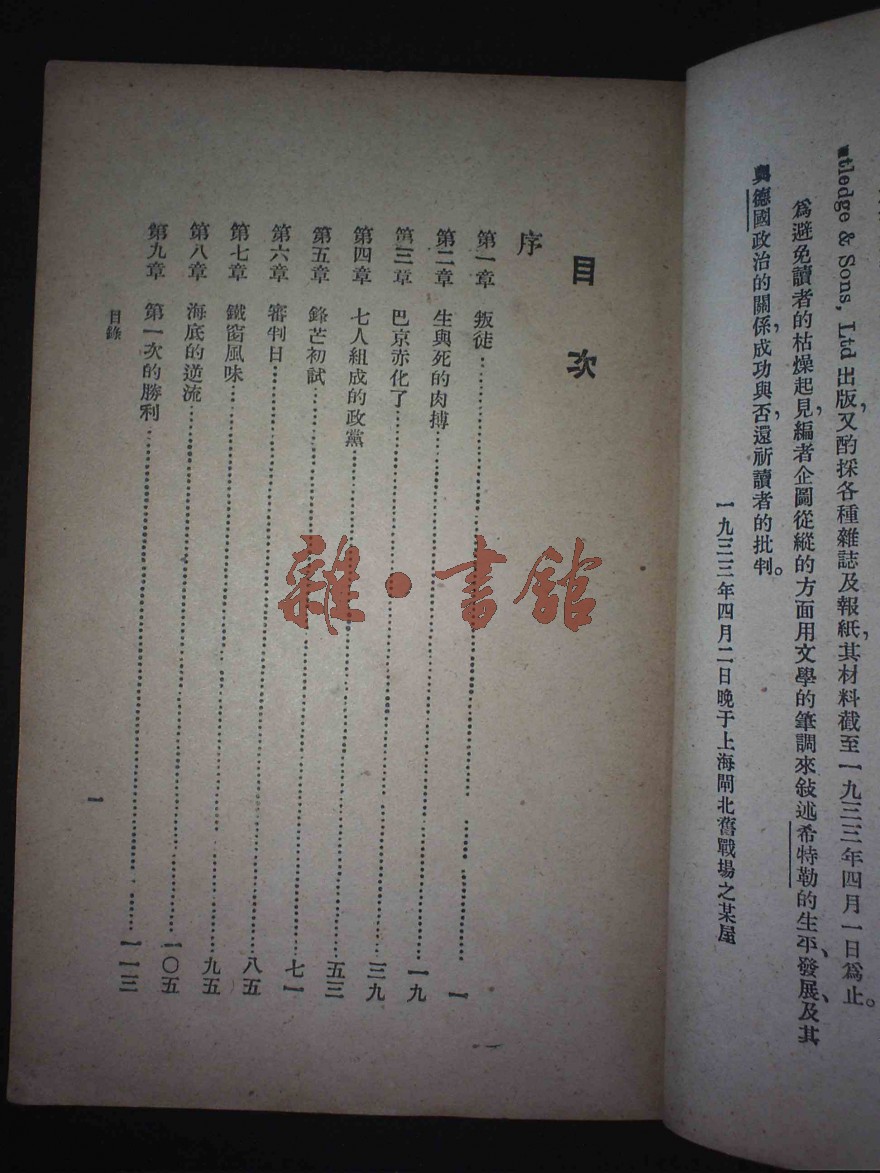 utledge & Sons, Ltd 出版，又酌採各種雜誌及報紙，其材料截至一九三三年四月一日爲止。
爲避免讀者的枯燥起見，編者企圖從縱的方面用文學的筆調來敍述希特勒的生平、發展、及其
與德國政治的關係，成功與否，還祈讀者的批判。
一九三三年四月二日晚于上海閘北舊戰場之某屋
目次
序
第一章 叛徒……一
第二章 生與死的肉搏……一九
第三章 巴京赤化了……三九
第四章 七人組成的政黨……五三
第五章 鋒芒初試……七一
第六章 審判日……八五
第七章 鐵窗風味……九五
第八章 海底的逆流……一〇五
第九章 第一次的勝利……一一三
目錄
一
雜·書館